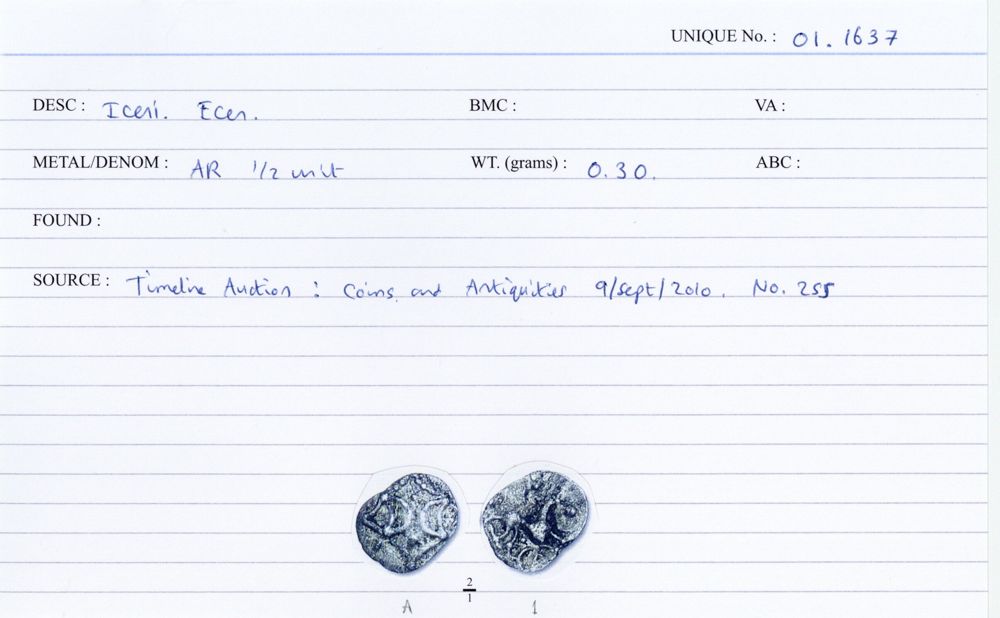 UNIQUE No. : 01. 1637
DESC : Iceni. Ecen. BMC : VA :
METAL/DENOM : AR 1/2 unit WT. (grams) : 0.30. ABC :
FOUND :
SOURCE : Timeline Auction : Coins and Antiquities 9/sept/2010. No. 255
2
1
A 1